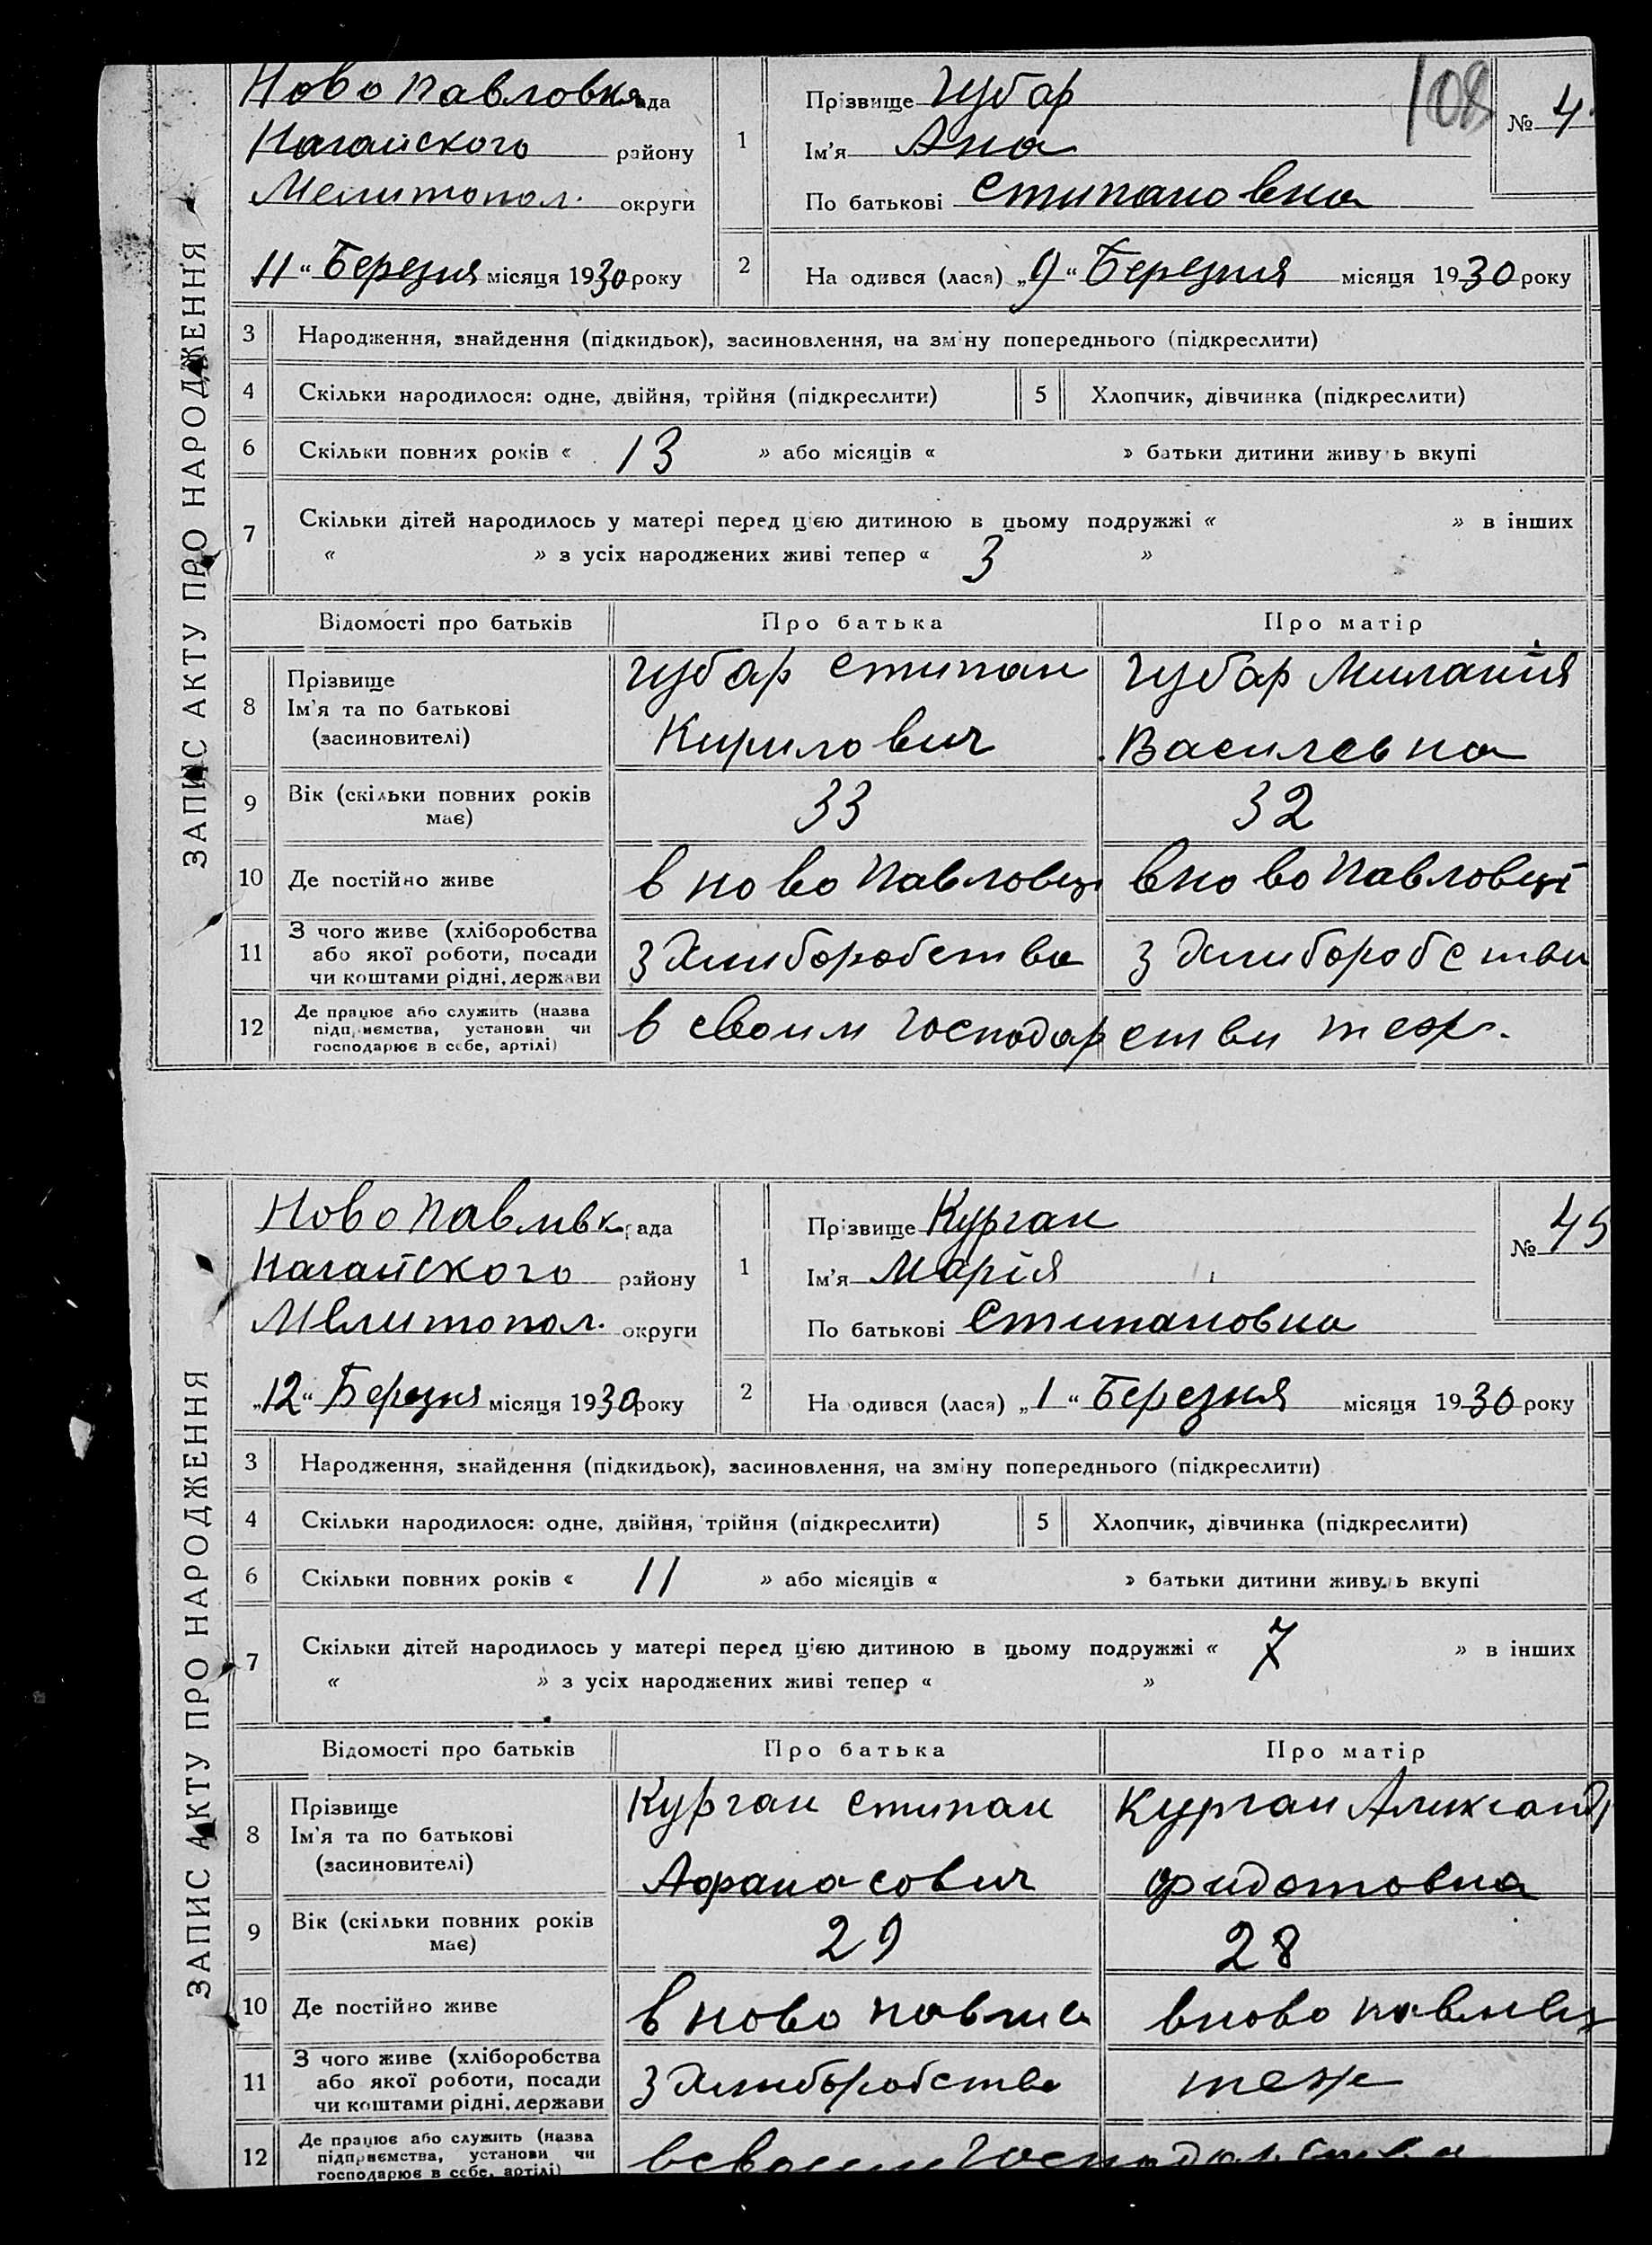 ЗАПИС АКТУ ПРО НАРОДЖЕННЯ
Ново Павловка рада
Нагайского району
Мелитопол. округи
11 “ Березня місяця 1930 року
1
Прізвище Чубар
Ім'я Ана
По батькові Стипановна
108
№ 4
2
На одився (лася) „9“ Березня місяця 1930 року
3 Народження, знайдення (підкидьок), засиновлення, на зміну попереднього (підкреслити)
4 Скільки народилося: одне, двійня, трійня (підкреслити) 5 Хлопчик, дівчинка (підкреслити)
6 Скільки повних років « 13 » або місяців « » батьки дитини живуть вкупі
7 Скільки дітей народилось у матері перед цією дитиною в цьому подружжі « » в інших
« » з усіх народжених живі тепер « 3 »
Відомості про батьків Про батька Про матір
8 Прізвище
Ім'я та по батькові
(засиновителі)
Чубар Стипан
Кирилович
Чубар Миланія
Василевна
9 Вік (скільки повних років
має)
33 32
10 Де постійно живе в ново Павловці в ново Павловці
11 З чого живе (хліборобства
або якої роботи, посади
чи коштами рідні, держави
з Хлиборобства з Хлиборобства
12 Де працює або служить (назва
підприємства, установи чи
господарює в себе, артілі)
в своим господарстви теж.
ЗАПИС АКТУ ПРО НАРОДЖЕННЯ
Ново Павливк рада
Нагайского району
Мелитопол. округи
„12“ Березня місяця 1930 року
1
Прізвище Курган
Ім'я Марія
По батькові Стипановна
№ 45
2
На одився (лася) „1“ Березня місяця 1930 року
3 Народження, знайдення (підкидьок), засиновлення, на зміну попереднього (підкреслити)
4 Скільки народилося: одне, двійня, трійня (підкреслити) 5 Хлопчик, дівчинка (підкреслити)
6 Скільки повних років « 11 » або місяців « » батьки дитини живуть вкупі
7 Скільки дітей народилось у матері перед цією дитиною в цьому подружжі « 7 » в інших
« » з усіх народжених живі тепер « »
Відомості про батьків Про батька Про матір
8 Прізвище
Ім'я та по батькові
(засиновителі)
Курган Стипан
Афанасович
Курган Александ
Фидотовна
9 Вік (скільки повних років
має)
29 28
10 Де постійно живе в ново павлив в ново павливц
11 З чого живе (хліборобства
або якої роботи, посади
чи коштами рідні, держави
з Хлиборобства теж
12 Де працює або служить (назва
підприємства, установи чи
господарює в себе, артілі)
в своим господарстви